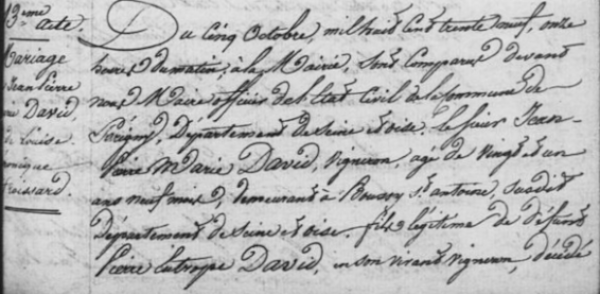 13ème acte.
Mariage
Jean Pierre
David,
de Louise
Du cinq Octobre, mil huit cent trente neuf, onze
heures du matin, à la Mairie, sont comparus devant
nous Maire officier de l'Etat Civil de la Commune de
Périgny, Département de Seine et oise, le sieur Jean-
Pierre Marie David, vigneron, agé de vingt et un
ans neuf mois, demeurant à Boussy St. antoine, susdit
Département de Seine et oise, fils légitime de défunt
Pierre Eutrope David, en son vivant vigneron, décédé